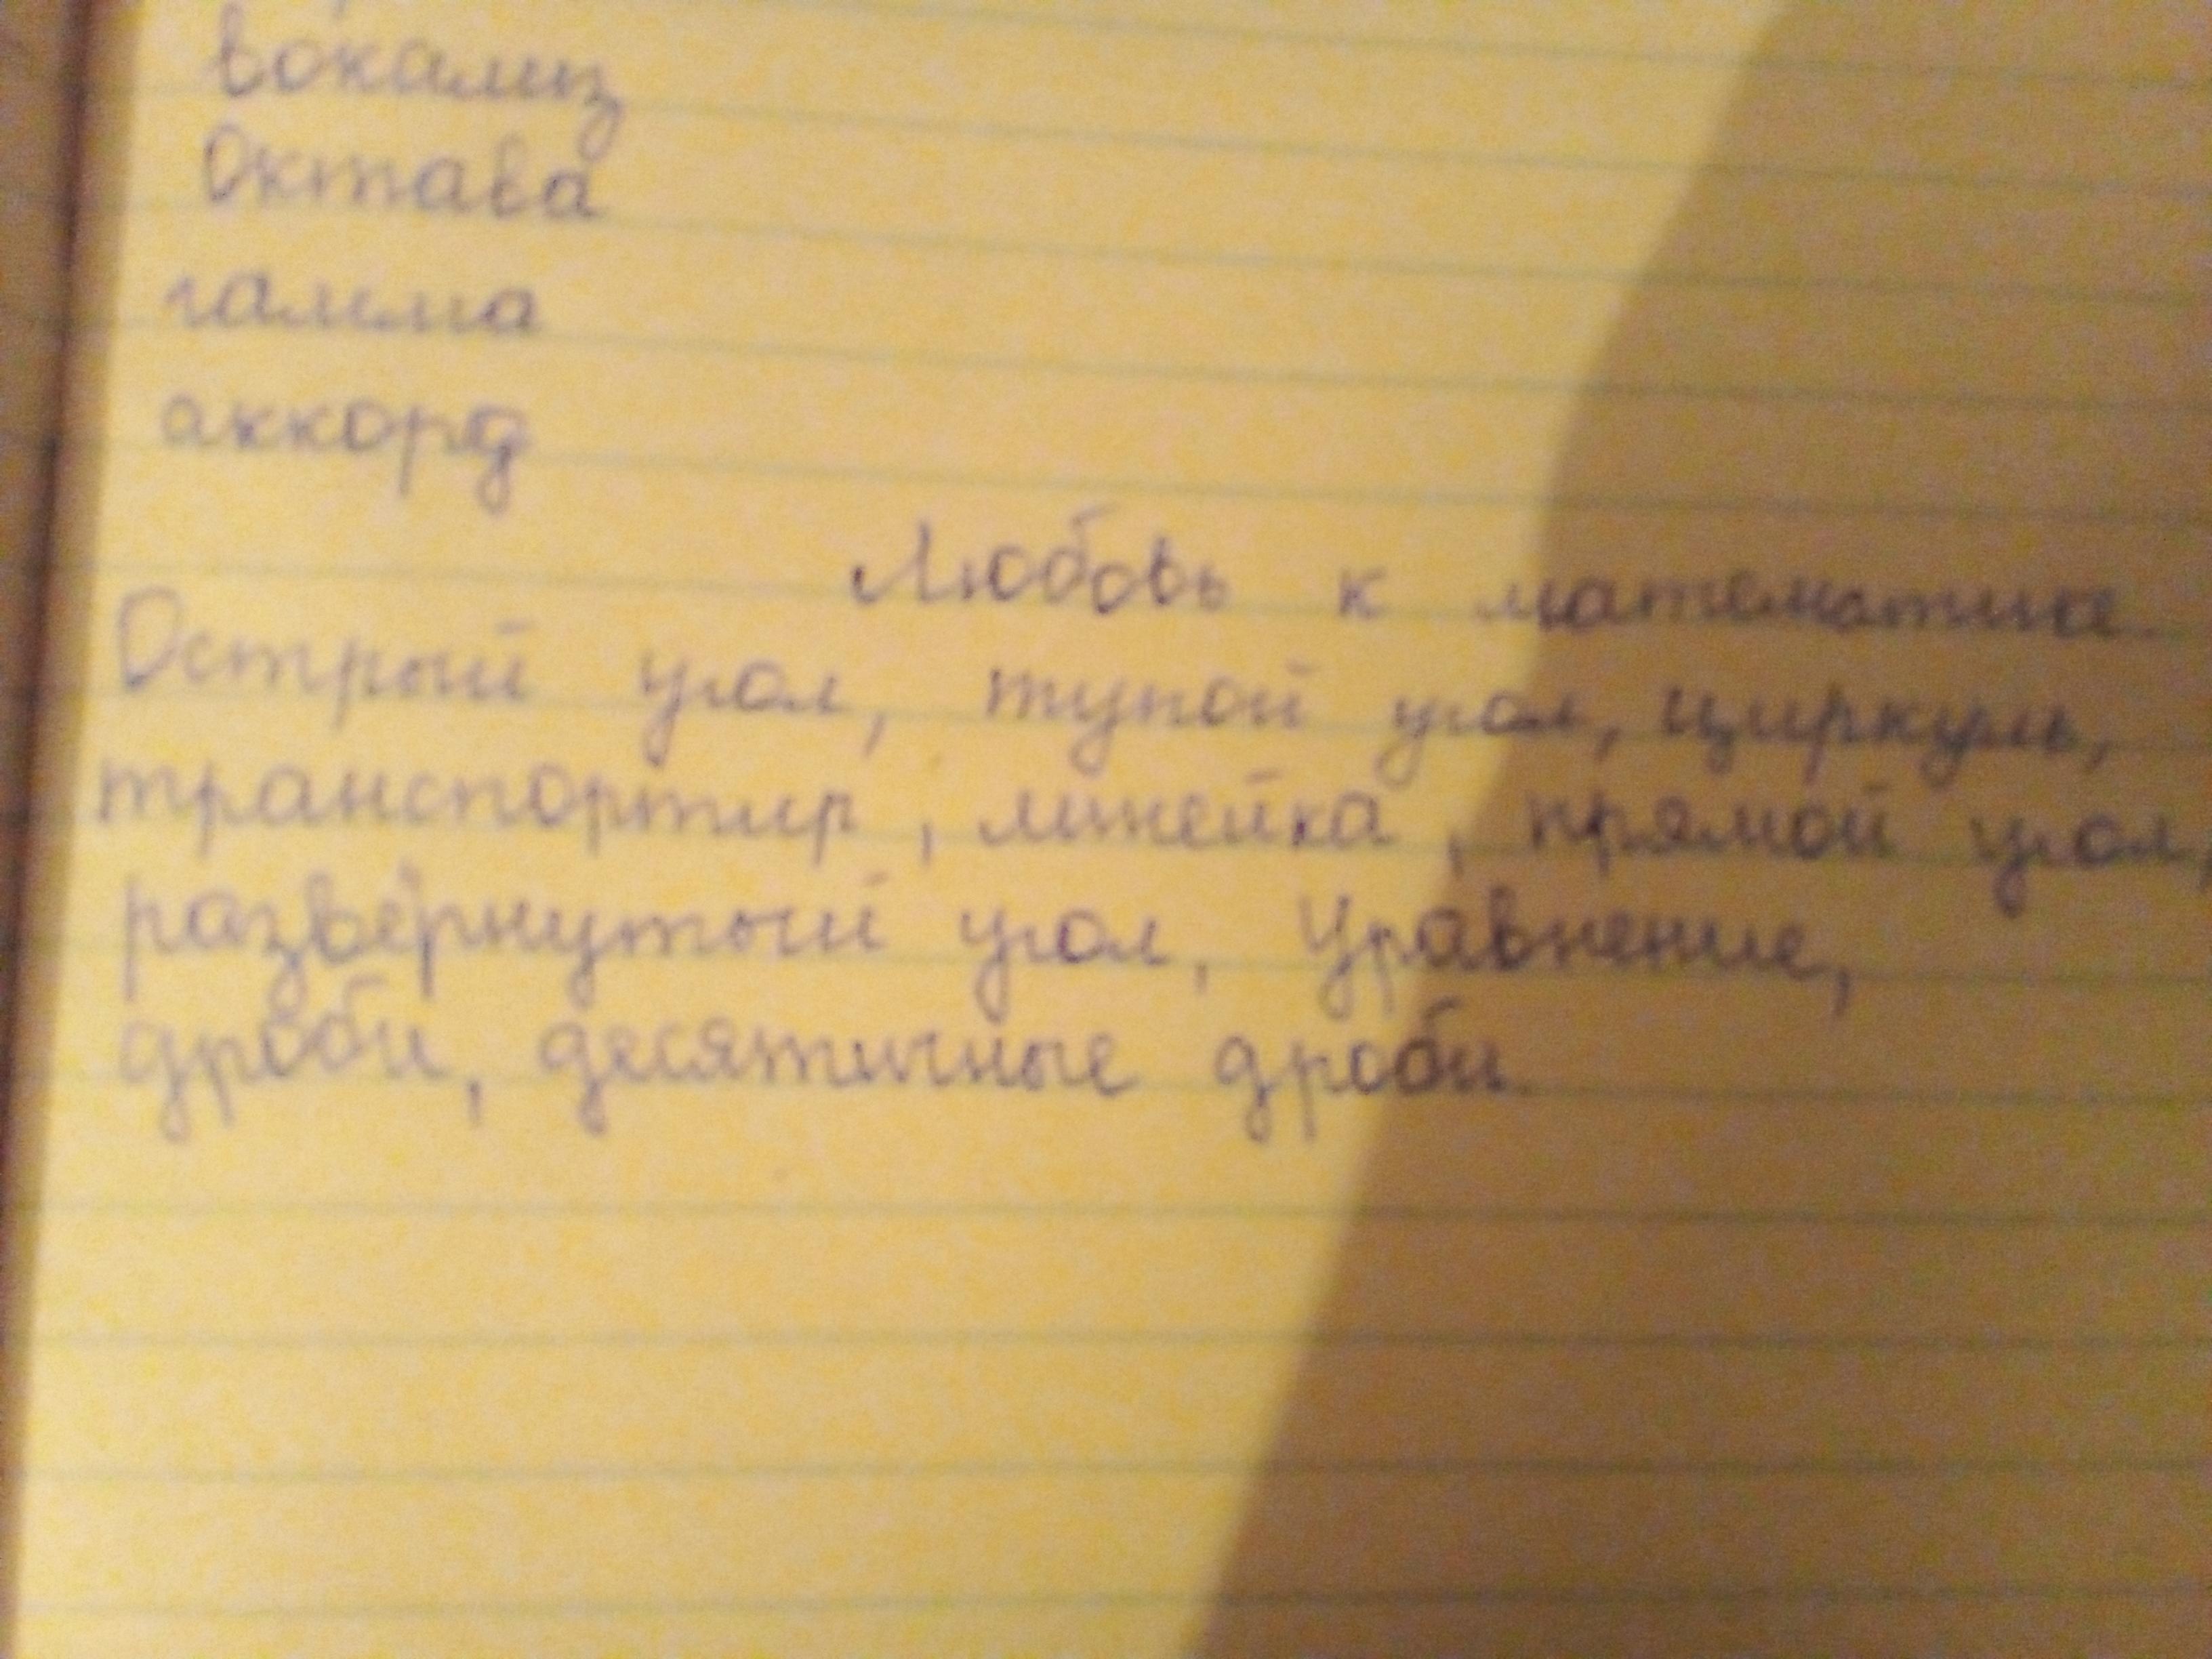 вокализ
Октава
гамма
аккорд
Любовь к математике.
Острый угол, тупой угол, циркуль,
транспортир, линейка, прямой угол,
развёрнутый угол, Уравнение,
дроби, десятичные дроби.